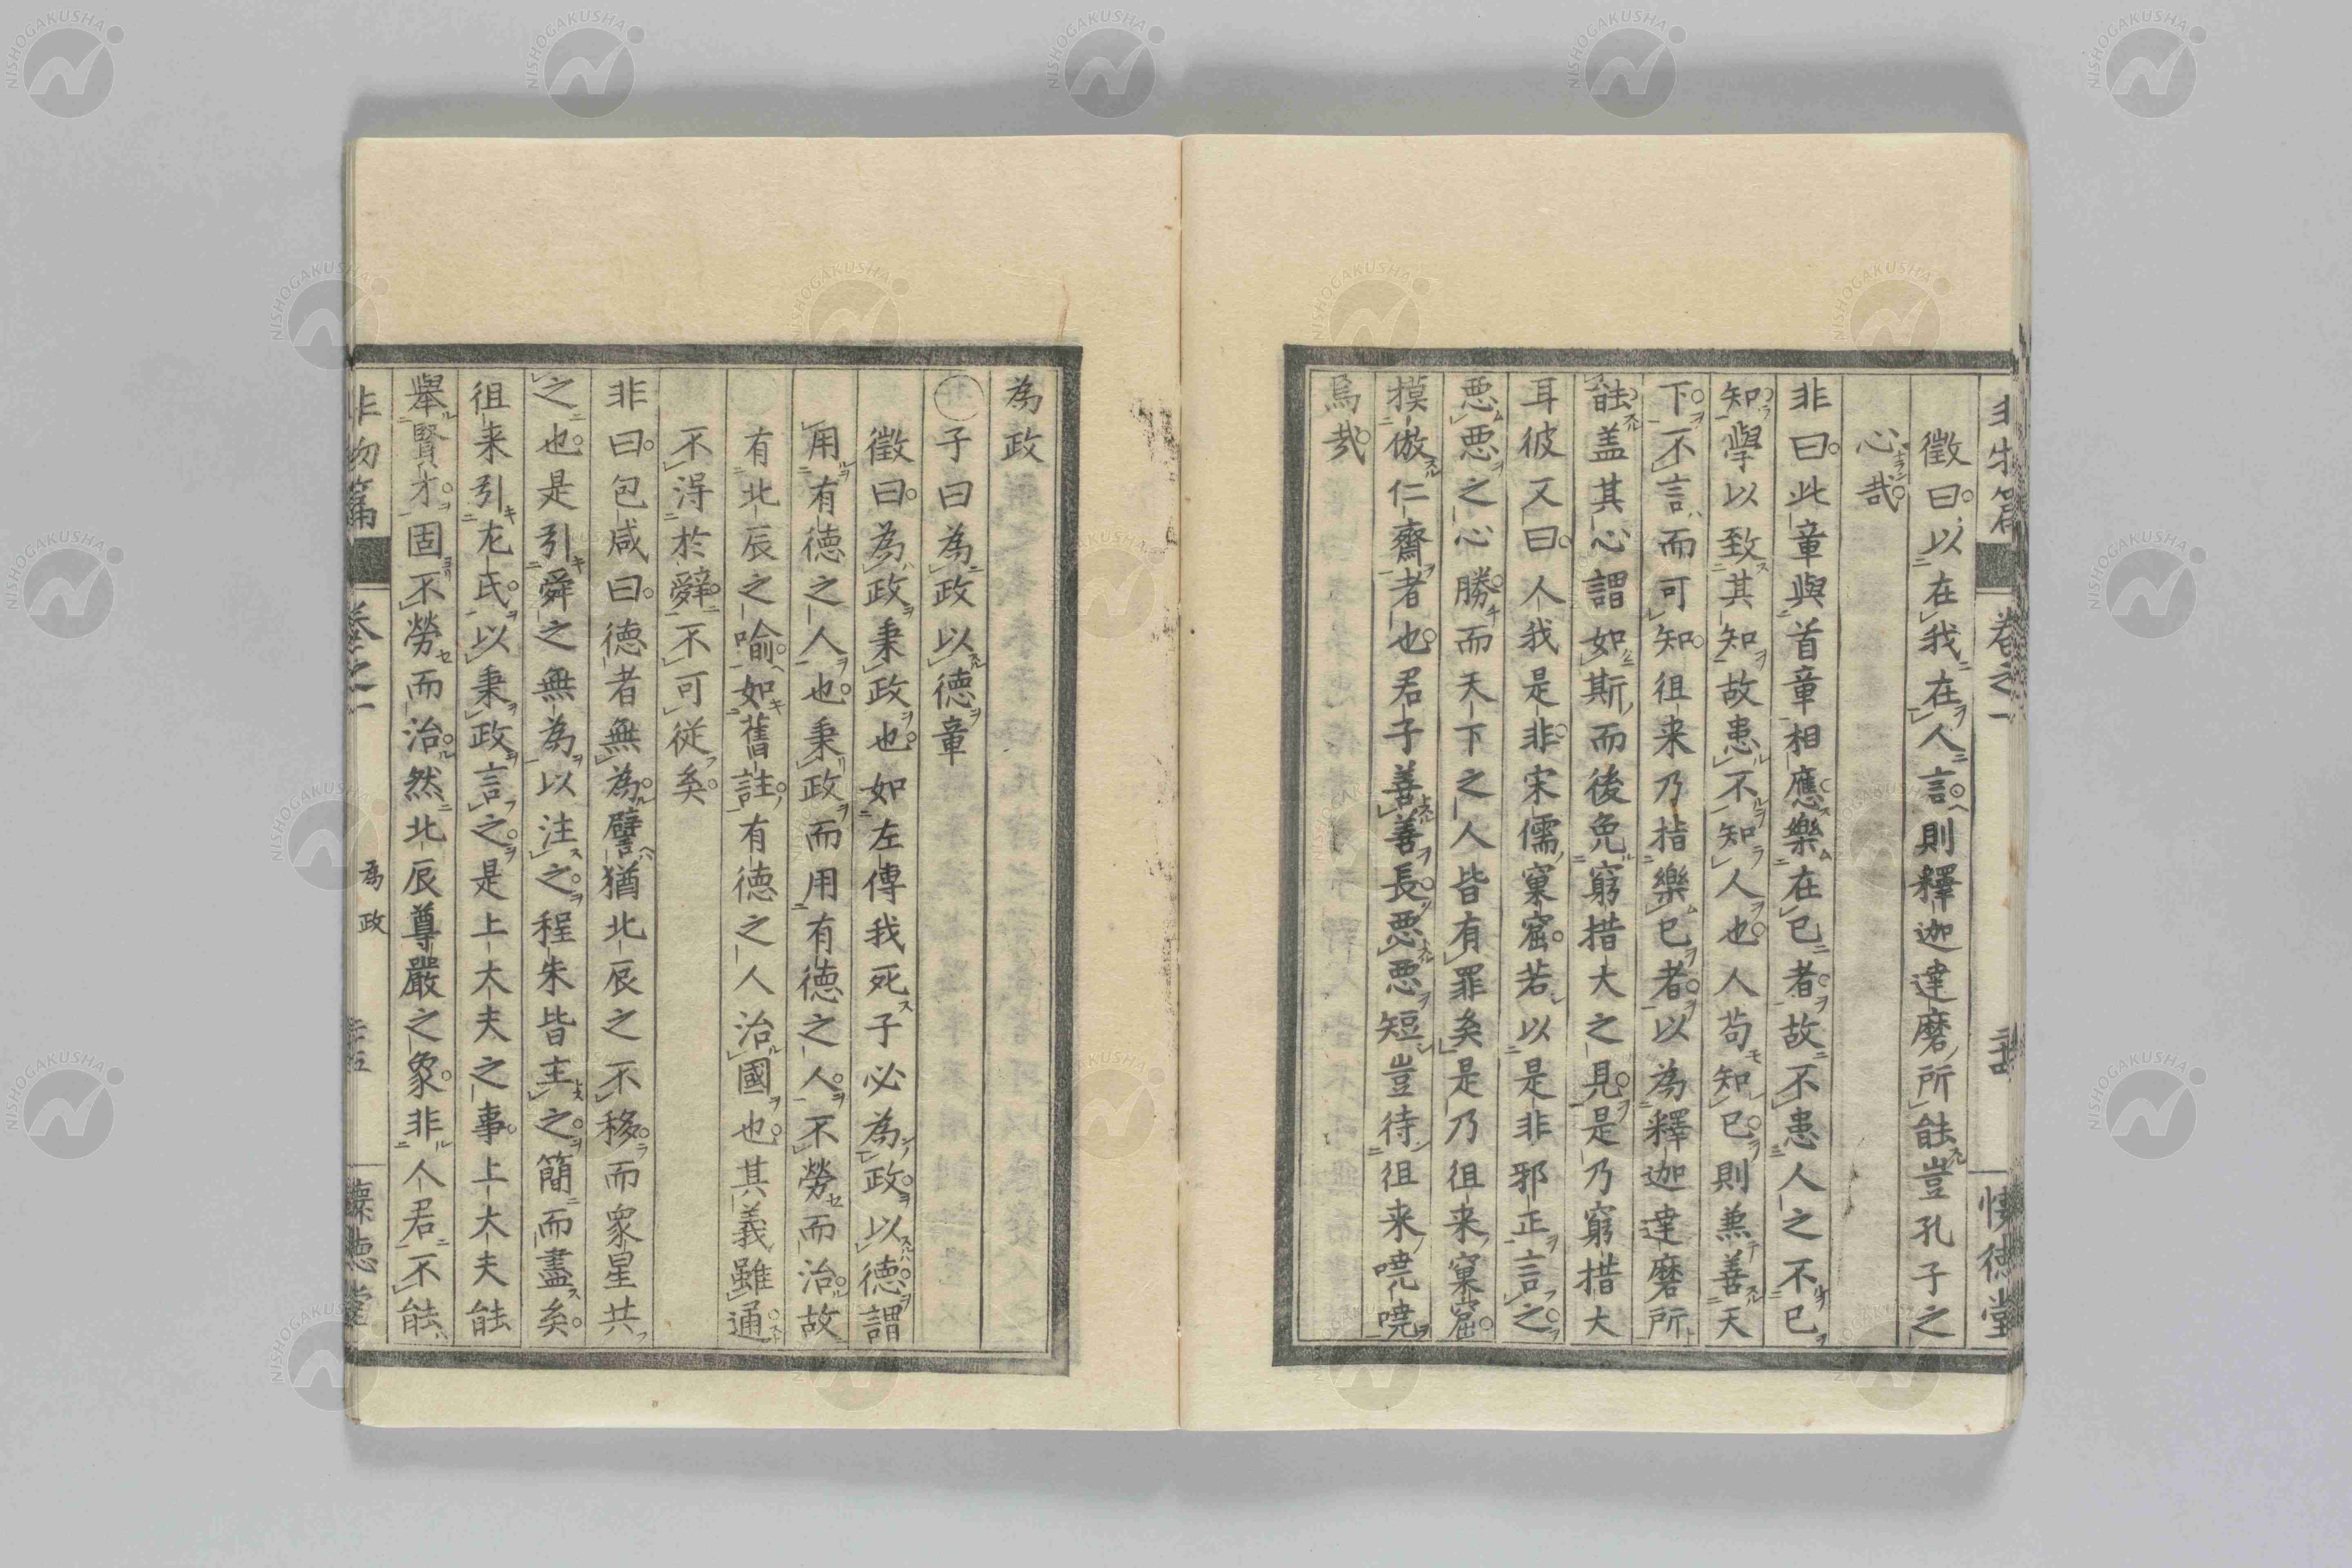 徵曰以在我在人言則釋迦達磨所能豈孔子之
心哉
非曰此章與首章相應樂在已者故不患人之不已
知學以致其知故患不知人也人苟知已則兼善天
下不言而可知徂来乃指樂已者以為釋迦達磨所
能盖其心謂如斯而後免窮措大之見是乃窮措大
耳彼又曰人我是非宋儒窠窟若以是非邪正言之
悪悪之心勝而天下之人皆有罪矣是乃徂来窠窟
摸倣仁齋者也君子善善長悪悪短豈待徂来嘵嘵
焉哉
為政
子曰為政以徳章
徵曰為政秉政也如左傳我死子必為政以徳謂
用有徳之人也秉政而用有徳之人不勞而治故
有北辰之喻如舊註有徳之人治國也其義雖通
不淂於辭不可從矣
非曰包咸曰徳者無為譬猶北辰之不移而衆星共
之也是引舜之無為以注之程朱皆主之簡而盡矣
徂来引左氏以秉政言之是上大夫之事上大夫能
舉賢才固不勞而治然北辰尊嚴之象非人君不能
非物篇
卷之一
為政
懷徳堂